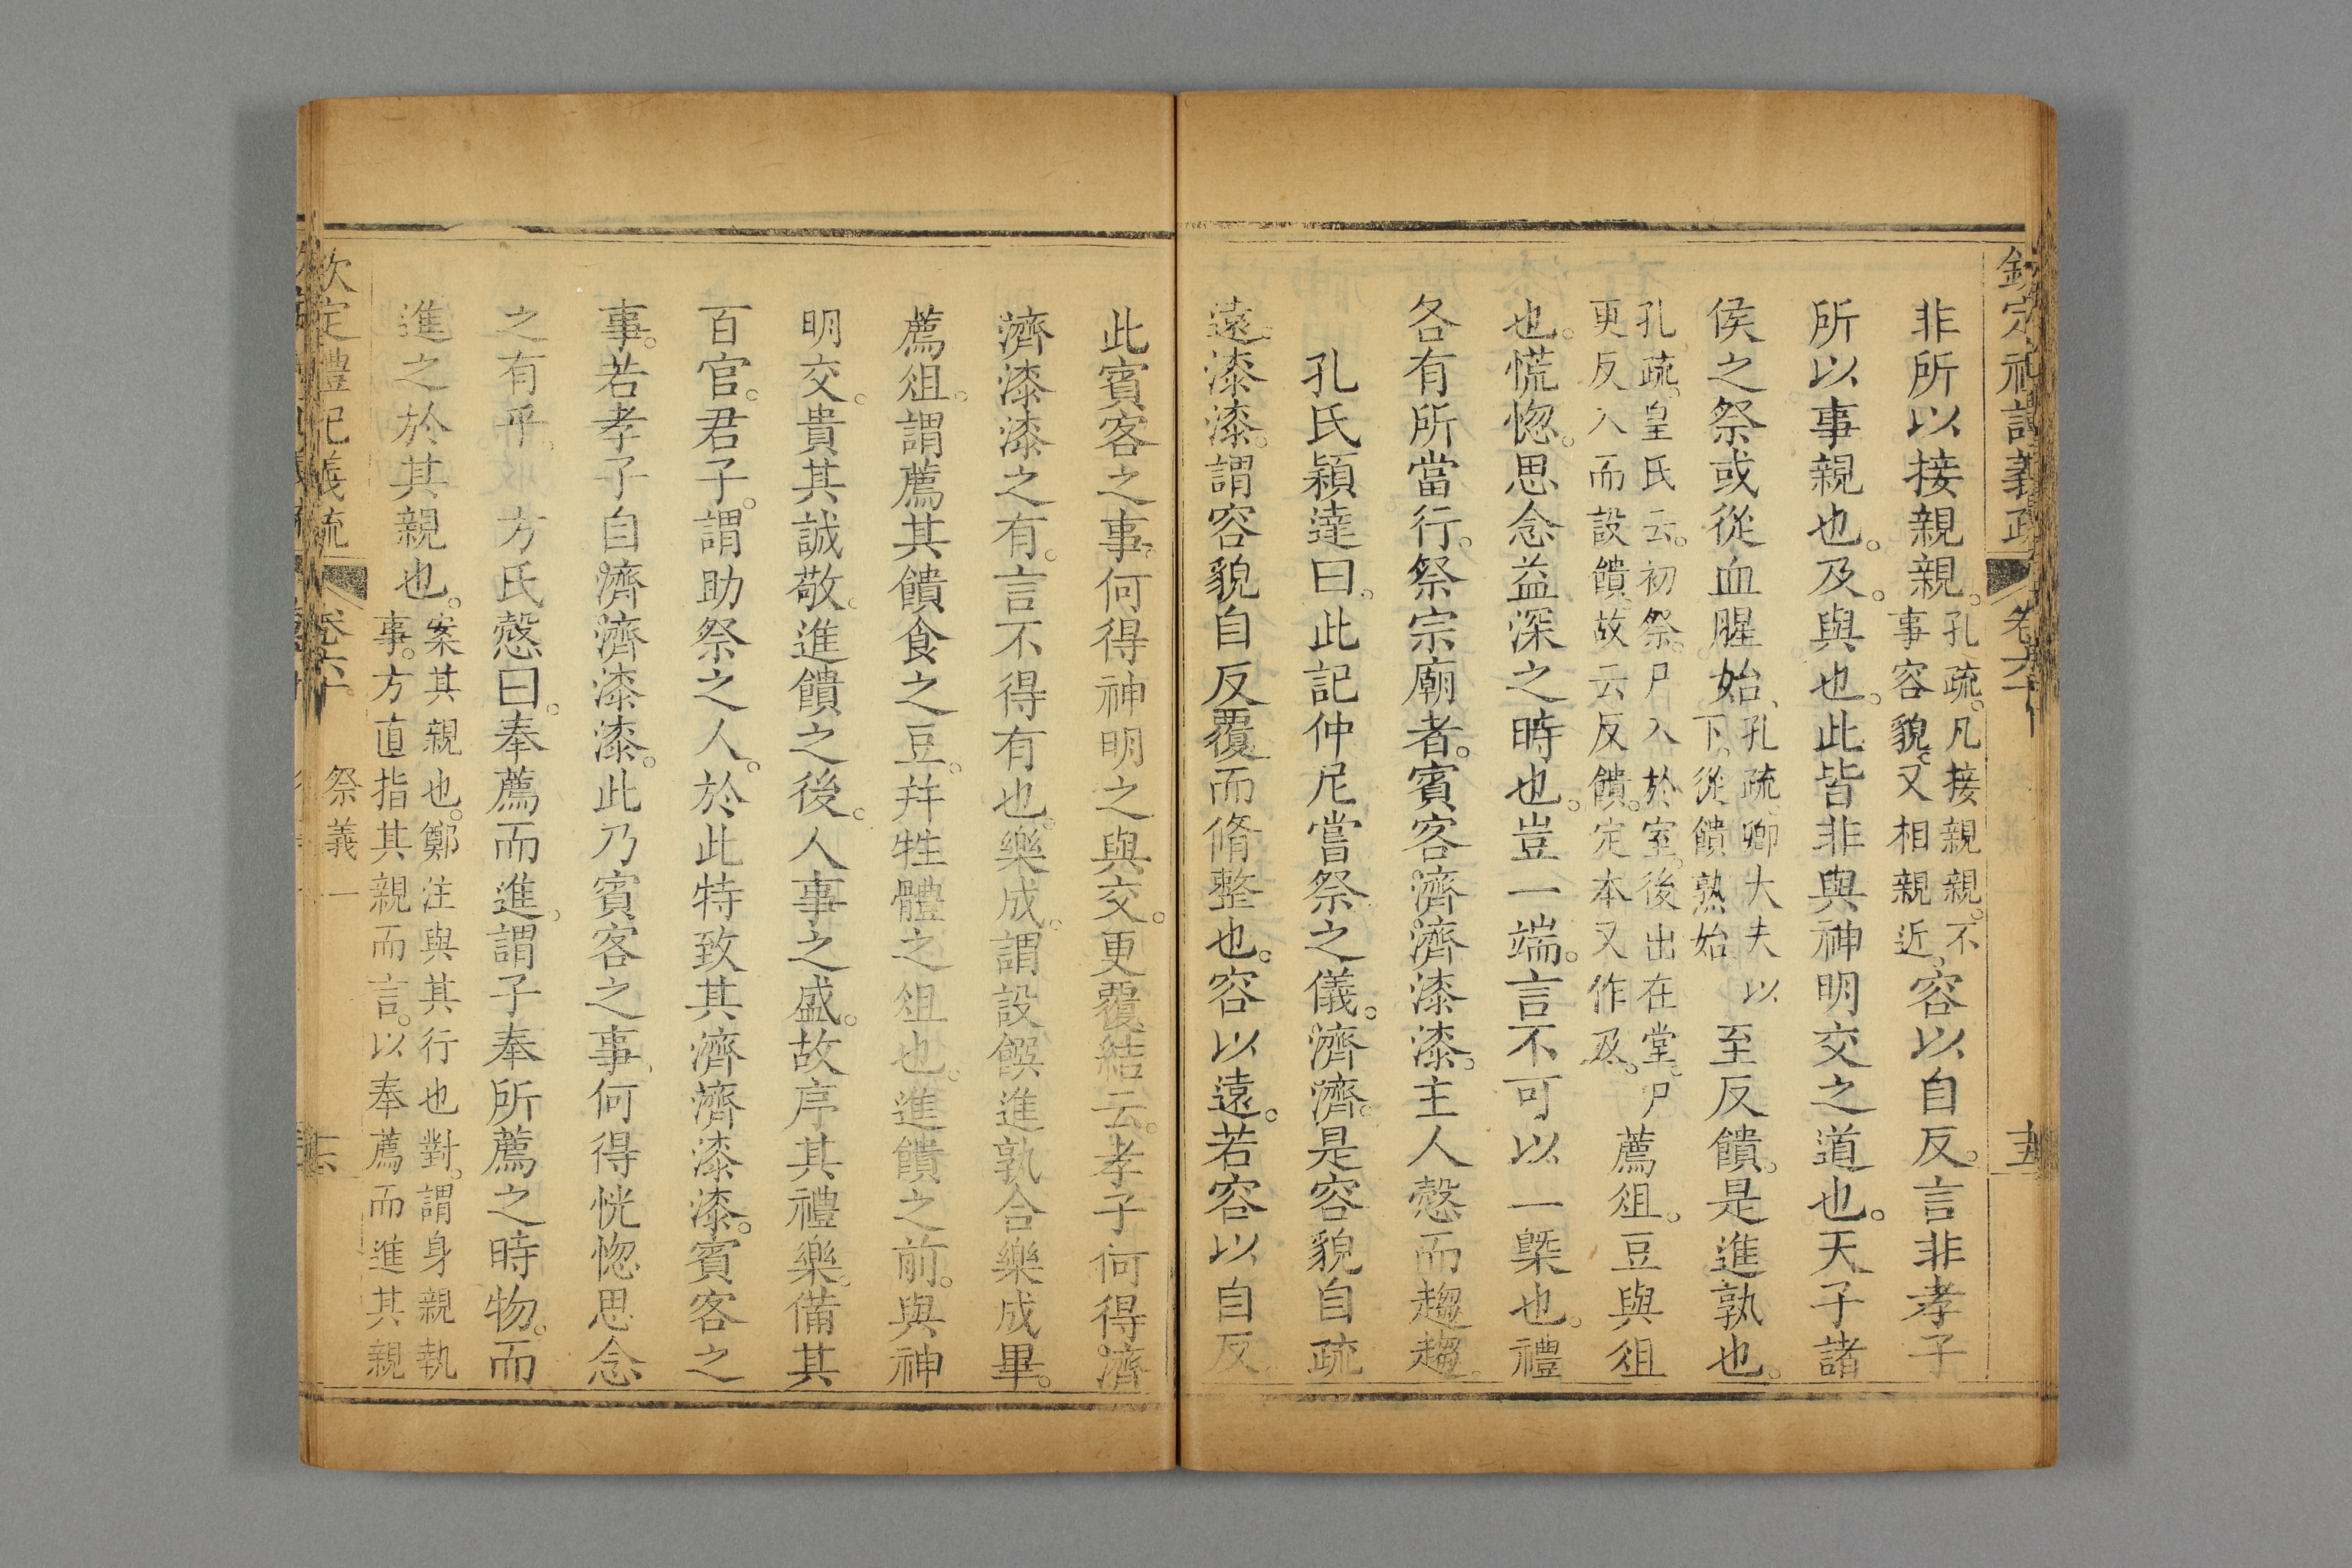 欽定禮記義疏 卷六十 十五
非所以接親親。孔疏。凡接親親。不事容貌。又相親近。容以自反。言非孝子
所以事親也。及。與也。此皆非與神明交之道也。天子諸
侯之祭或從血腥始、孔疏、卿大夫以下。從饋熟始至反饋。是進孰也。
孔疏。皇氏云。初祭。尸入於室。後出在堂。尸更反入而設饋。故云反饋。定本又作及。薦俎。豆與俎
也。慌惚。思念益深之時也。豈一端。言不可以一槩也。禮
各有所當行。祭宗廟者。賓客濟濟漆漆。主人慤而趨趨。
孔氏穎達曰。此記仲尼嘗祭之儀。濟濟。是容貌自疏
遠。漆漆。謂容貌自反覆而脩整也。容以遠。若容以自反
此賓客之事。何得神明之與交。更覆結云。孝子何得。濟
濟漆漆之有。言不得有也。樂成。謂設饌進孰合樂成畢。
薦俎。謂薦其饋食之豆。并牲體之俎也。進饋之前。與神
明交。貴其誠敬。進饋之後。人事之盛。故序其禮樂。備其
百官。君子。謂助祭之人。於此特致其濟濟漆漆。賓客之
事。若孝子自濟濟漆漆。此乃賓客之事、何得恍惚思念
之有乎。方氏慤曰。奉薦而進。謂子奉所薦之時物。而
進之於其親也。案其親也。鄭注與其行也對。謂身親執事。方直指其親而言。以奉薦而進其親
欽定禮記義疏 卷六十 祭義一 十六